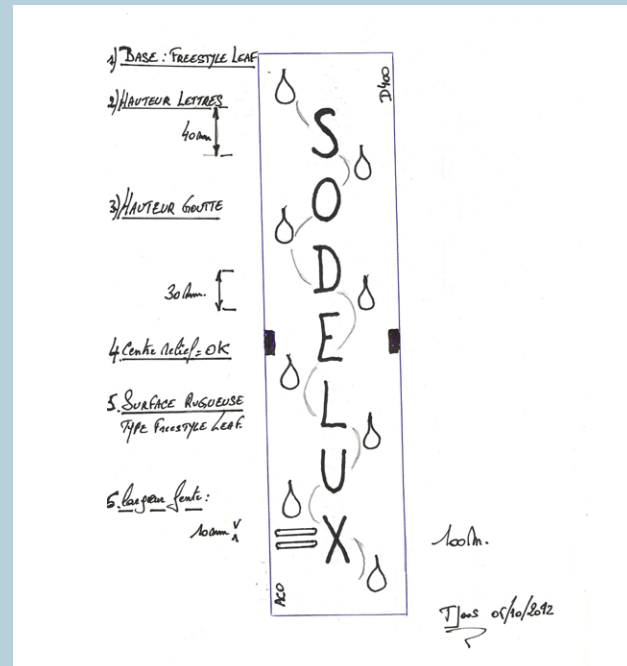 1) BASE : FREESTYLE LEAF
D400
2) HAUTEUR LETTRES
40mm
S
O
D
E
L
U
X
3) HAUTEUR GOUTTE
30mm.
4. Centre relief = OK
5. SURFACE RUGUEUSE
TYPE FREESTYLE LEAF.
5. largeur fente :
10mm
100m.
ACO
05/10/2012